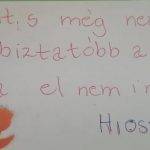 is még ne
biztatóbb a
a el nem i
Hios